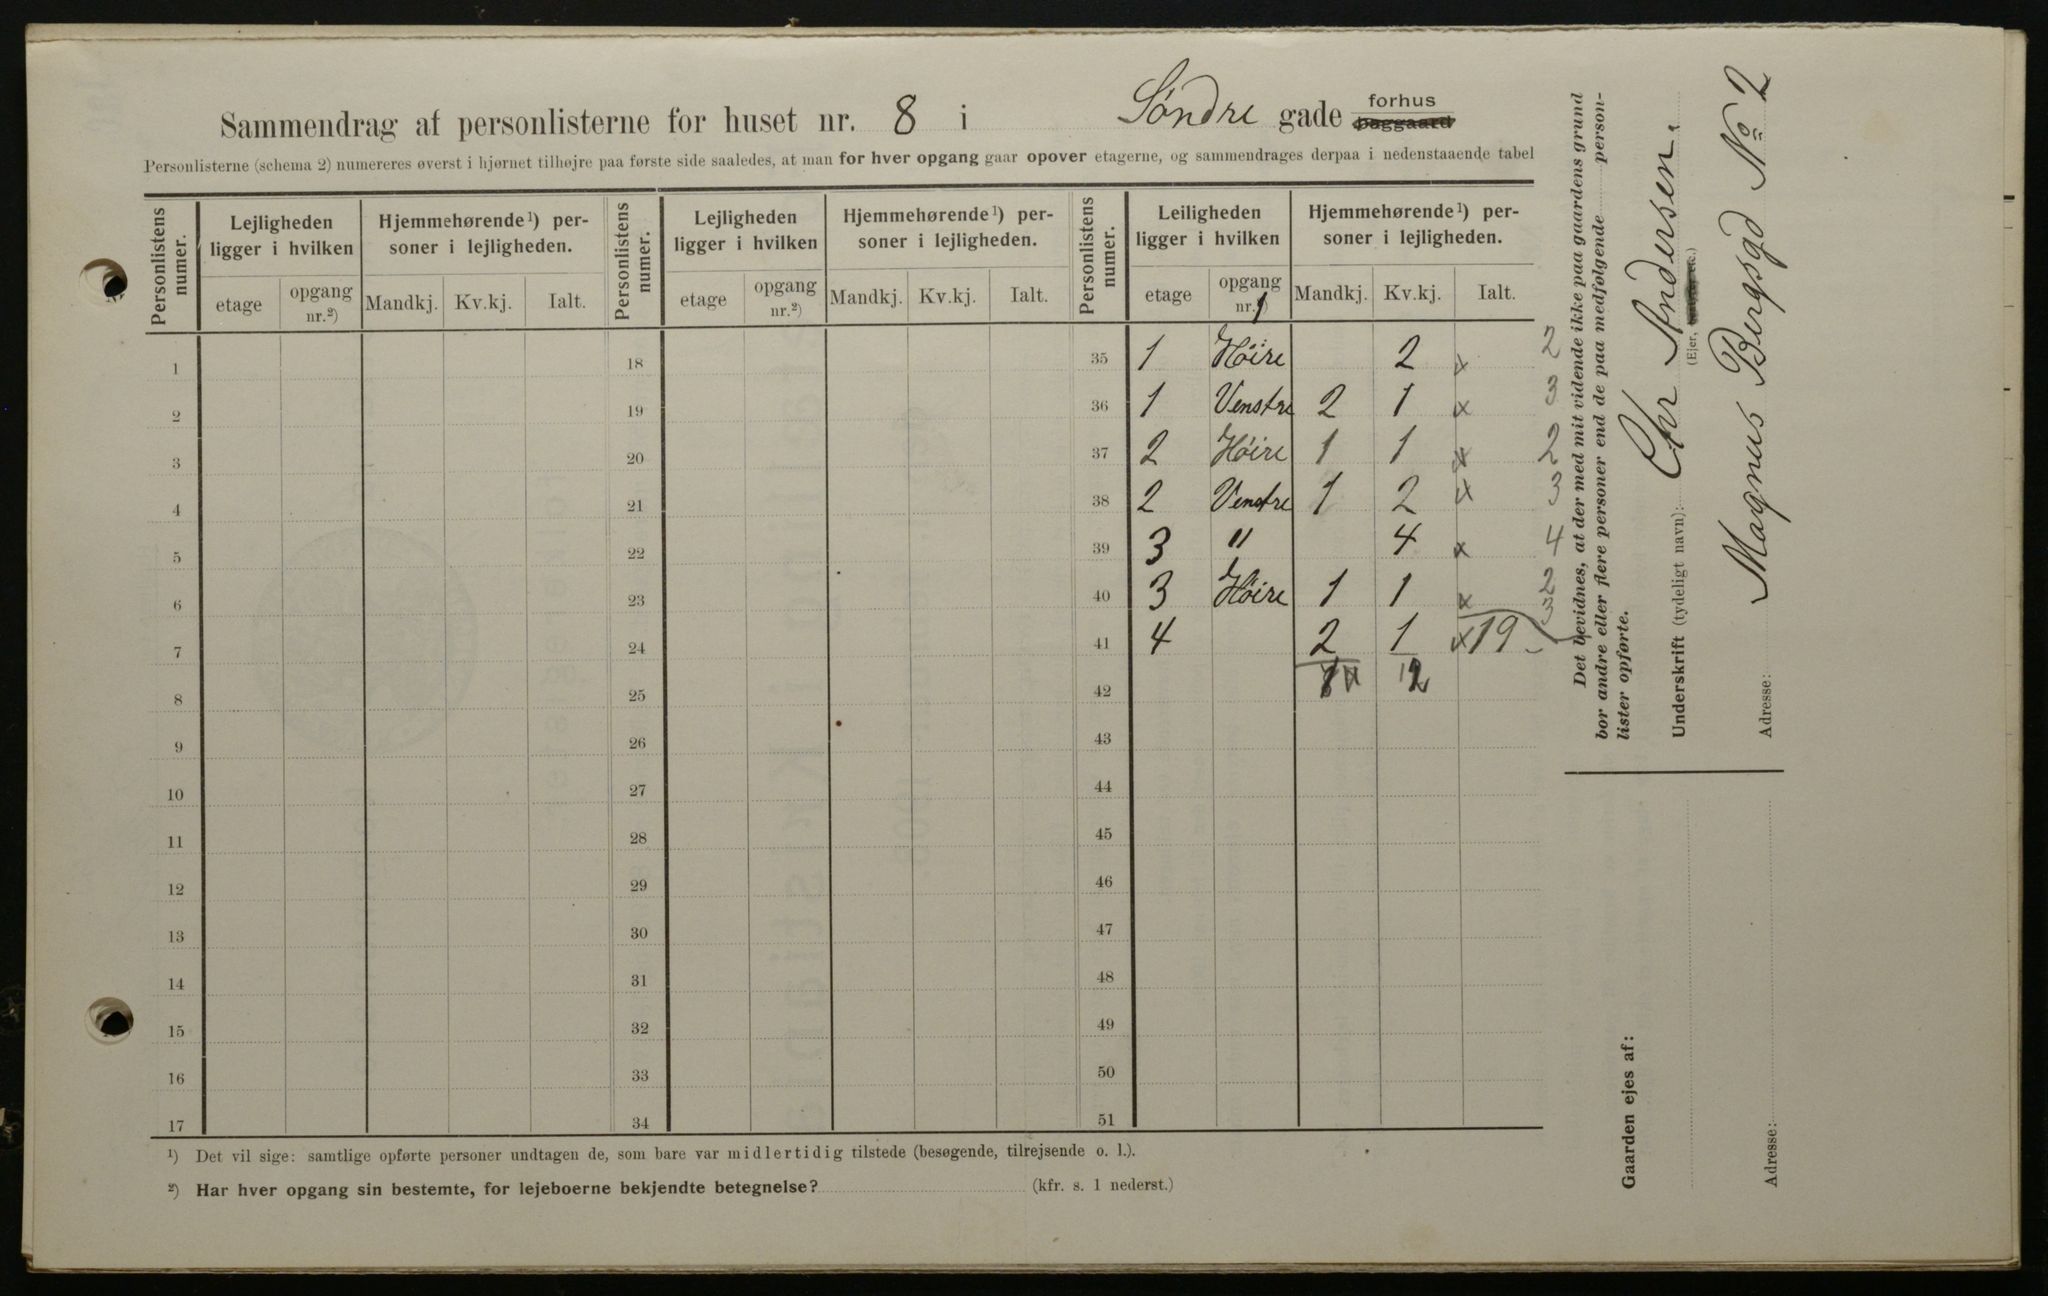 Sammendrag af personlisterne for huset nr. 8 i Søndre gade forhus baggaard
Personlisterne (schema 2) numereres øverst i hjørnet tilhøjre paa første side saaledes, at man for hver opgang gaar opover etagerne, og sammendrages derpaa i nedenstaaende tabel
Personlistens numer. Lejligheden ligger i hvilken Hjemmehørende¹) personer i lejligheden. Personlistens numer. Lejligheden ligger i hvilken Hjemmehørende¹) personer i lejligheden. Personlistens numer. Leiligheden ligger i hvilken Hjemmehørende¹) personer i lejligheden.
etage opgang nr.²) Mandkj. Kv.kj. Ialt. etage opgang nr.²) Mandkj. Kv.kj. Ialt. etage opgang nr. 1) Mandkj. Kv.kj. Ialt.
1 18 35 1 Høire 2 x 2
2 19 36 1 Venstre 2 1 x 3
3 20 37 2 Høire 1 1 x 2
4 21 38 2 Venstre 1 2 x 3
5 22 39 3 " 4 x 4
6 23 40 3 Høire 1 1 x 2
7 24 41 4 2 1 x 19 3
8 25 42 12
9 26 43
10 27 44
11 28 45
12 29 46
13 30 47
14 31 48
15 32 49
16 33 50
17 34 51
¹) Det vil sige: samtlige opførte personer undtagen de, som bare var midlertidig tilstede (besøgende, tilrejsende o. l.).
²) Har hver opgang sin bestemte, for lejeboerne bekjendte betegnelse? (kfr. s. 1 nederst.)
Det bevidnes, at der med mit vidende ikke paa gaardens grund
bor andre eller flere personer end de paa medfølgende personlister opførte.
Underskrift (tydeligt navn): Chr Andersen.
(Ejer, etc.)
Adresse: Magnus Bergsgd No 2
Gaarden ejes af:
Adresse: